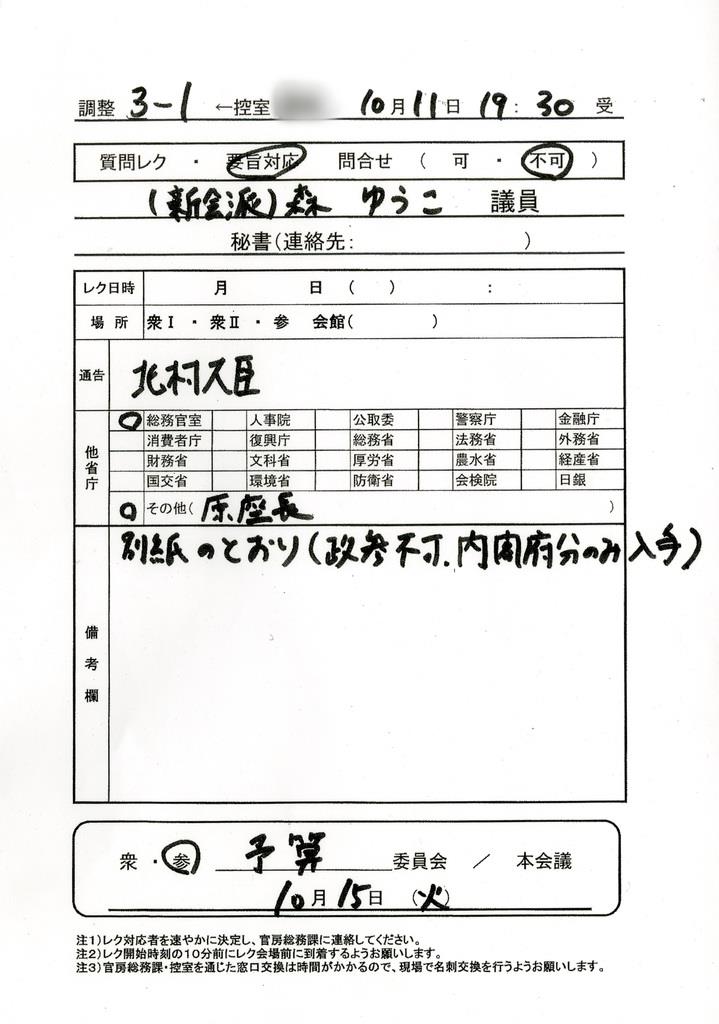 調整 3-1 ←控室 10月11日 19:30 受
質問レク ・ 要旨対応 問合せ ( 可 ・ 不可 )
(新会派)森 ゆうこ 議員
秘書(連絡先: )
レク日時 月 日 ( ) :
場所 衆Ⅰ・衆Ⅱ・参 会館( )
通告 北村大臣
他省庁
総務官室 人事院 公取委 警察庁 金融庁
消費者庁 復興庁 総務省 法務省 外務省
財務省 文科省 厚労省 農水省 経産省
国交省 環境省 防衛省 会検院 日銀
その他( 原座長 )
備考欄
別紙のとおり(政参不可、内閣府分のみ入手)
衆・参 予算 委員会 / 本会議
10月15日 (火)
注1)レク対応者を速やかに決定し、官房総務課に連絡してください。
注2)レク開始時刻の10分前にレク会場前に到着するようお願いします。
注3)官房総務課・控室を通じた窓口交換は時間がかかるので、現場で名刺交換を行うようお願いします。